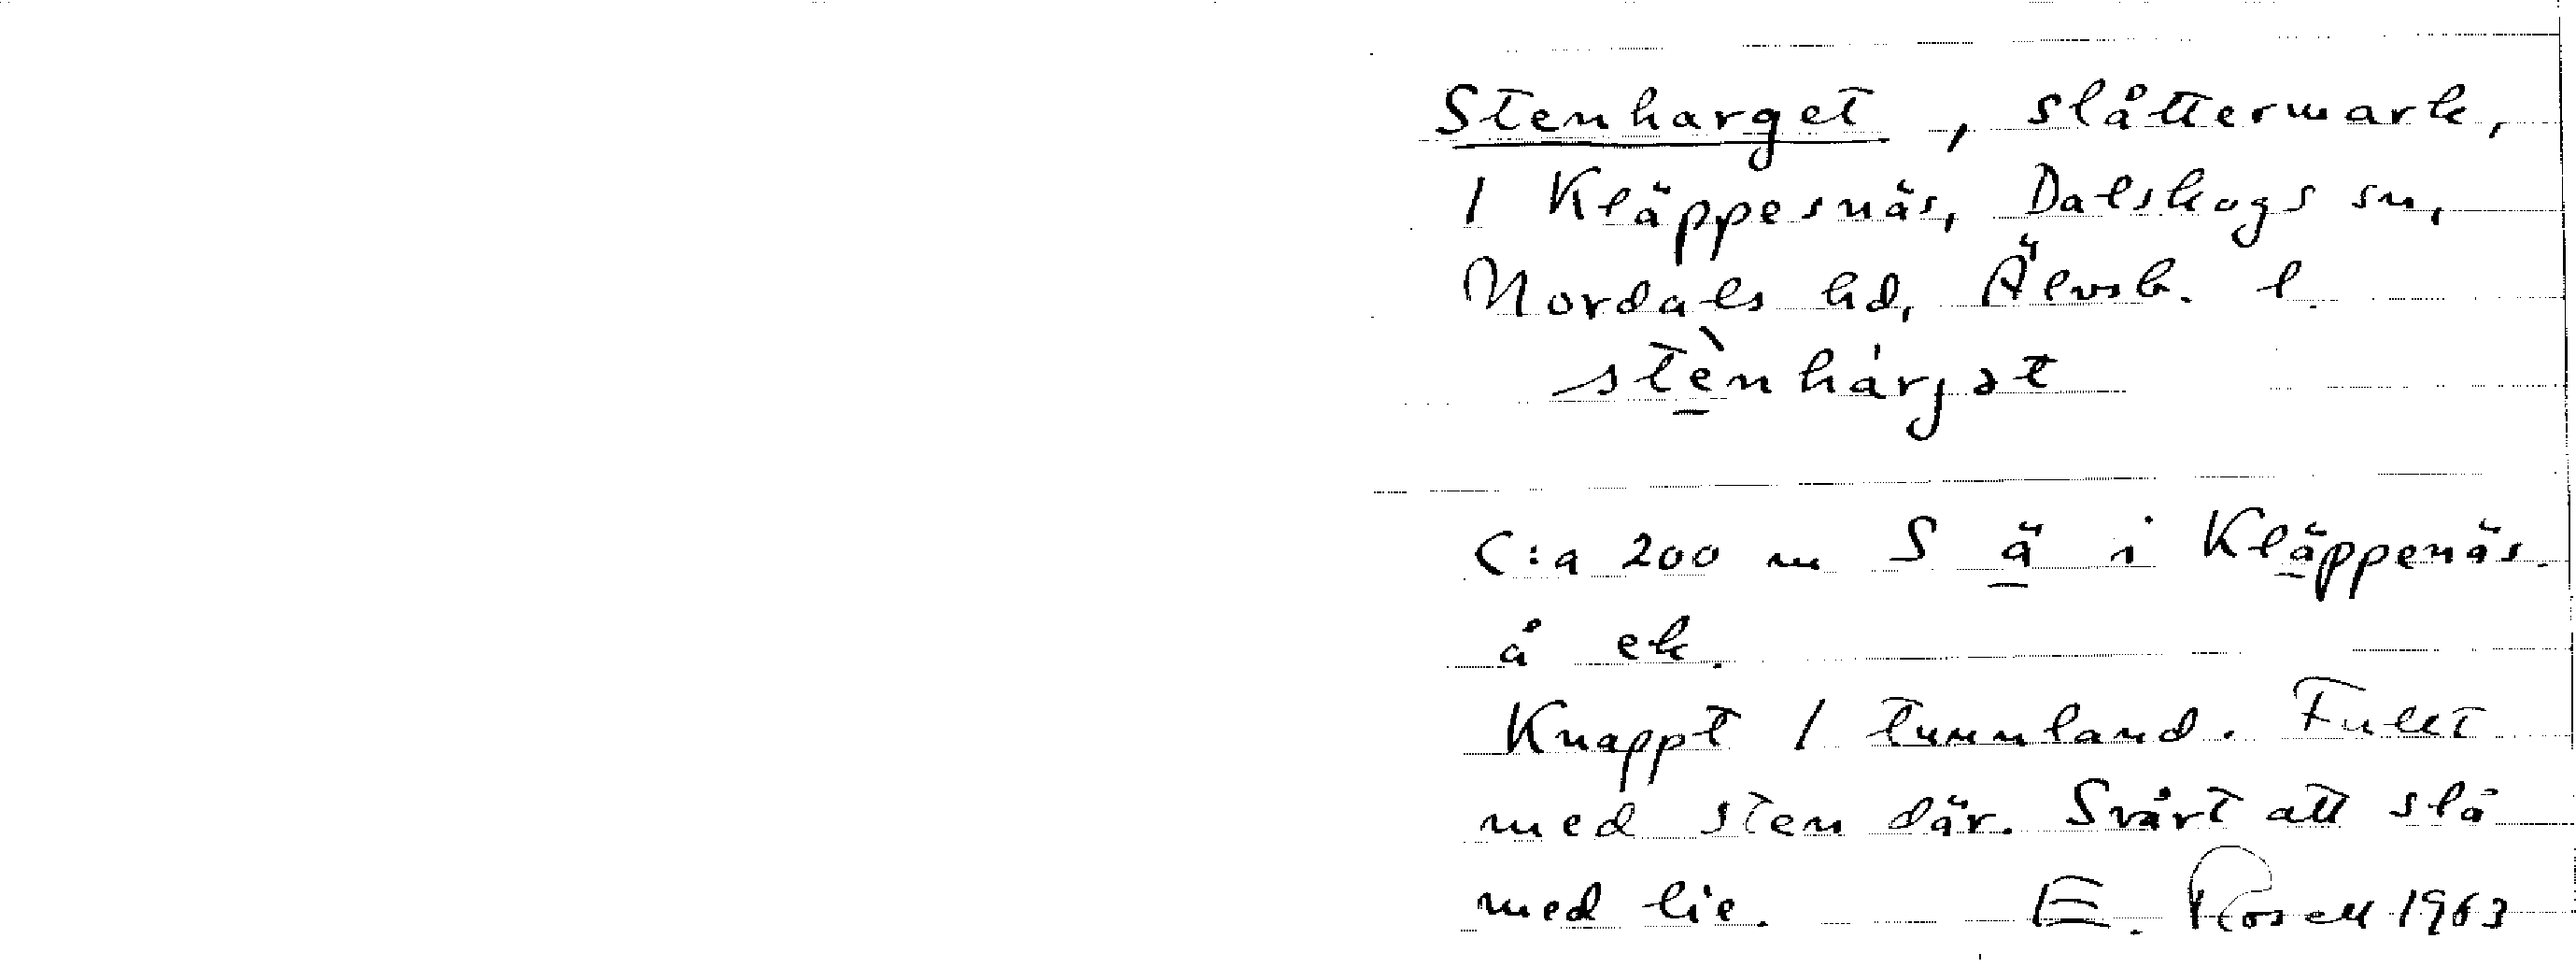 Stenharget, slåttermark,
1 Kläppesnäs, Dalskogs sn,
Nordals hd, Älvsb. l.
stè̱nhárjət
C:a 200 m S ä̱ i Klä̱ppenäs
å ek.
Knappt 1 tunnland. Fullt
med sten där. Svårt att slå
med lie. E. Rosell 1963